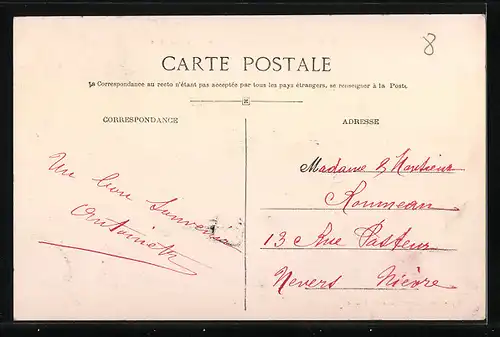 8
CARTE POSTALE
La Correspondance au recto n'étant pas acceptée par tous les pays étrangers, se renseigner à la Poste.
CORRESPONDANCE
Un bon Souvenir
Antoinette
ADRESSE
Madame & Monsieur
13 Rue Pasteur
Nevers Nièvre